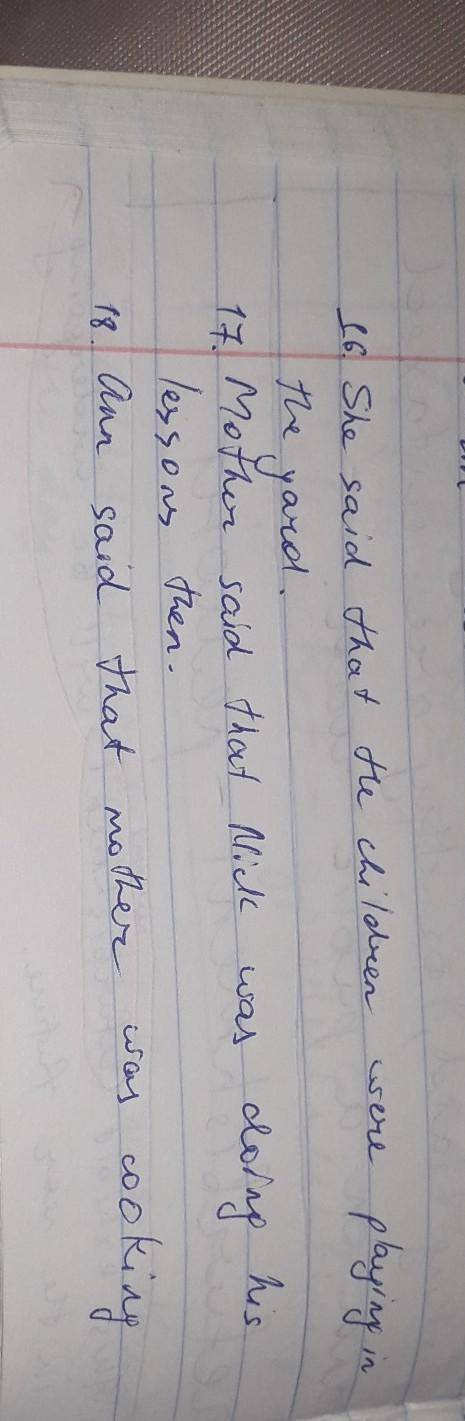 16. She said that the children were playing in
the yard.
17. Mother said that Nick was doing his
lessons then.
18. Ann said that mother was cooking